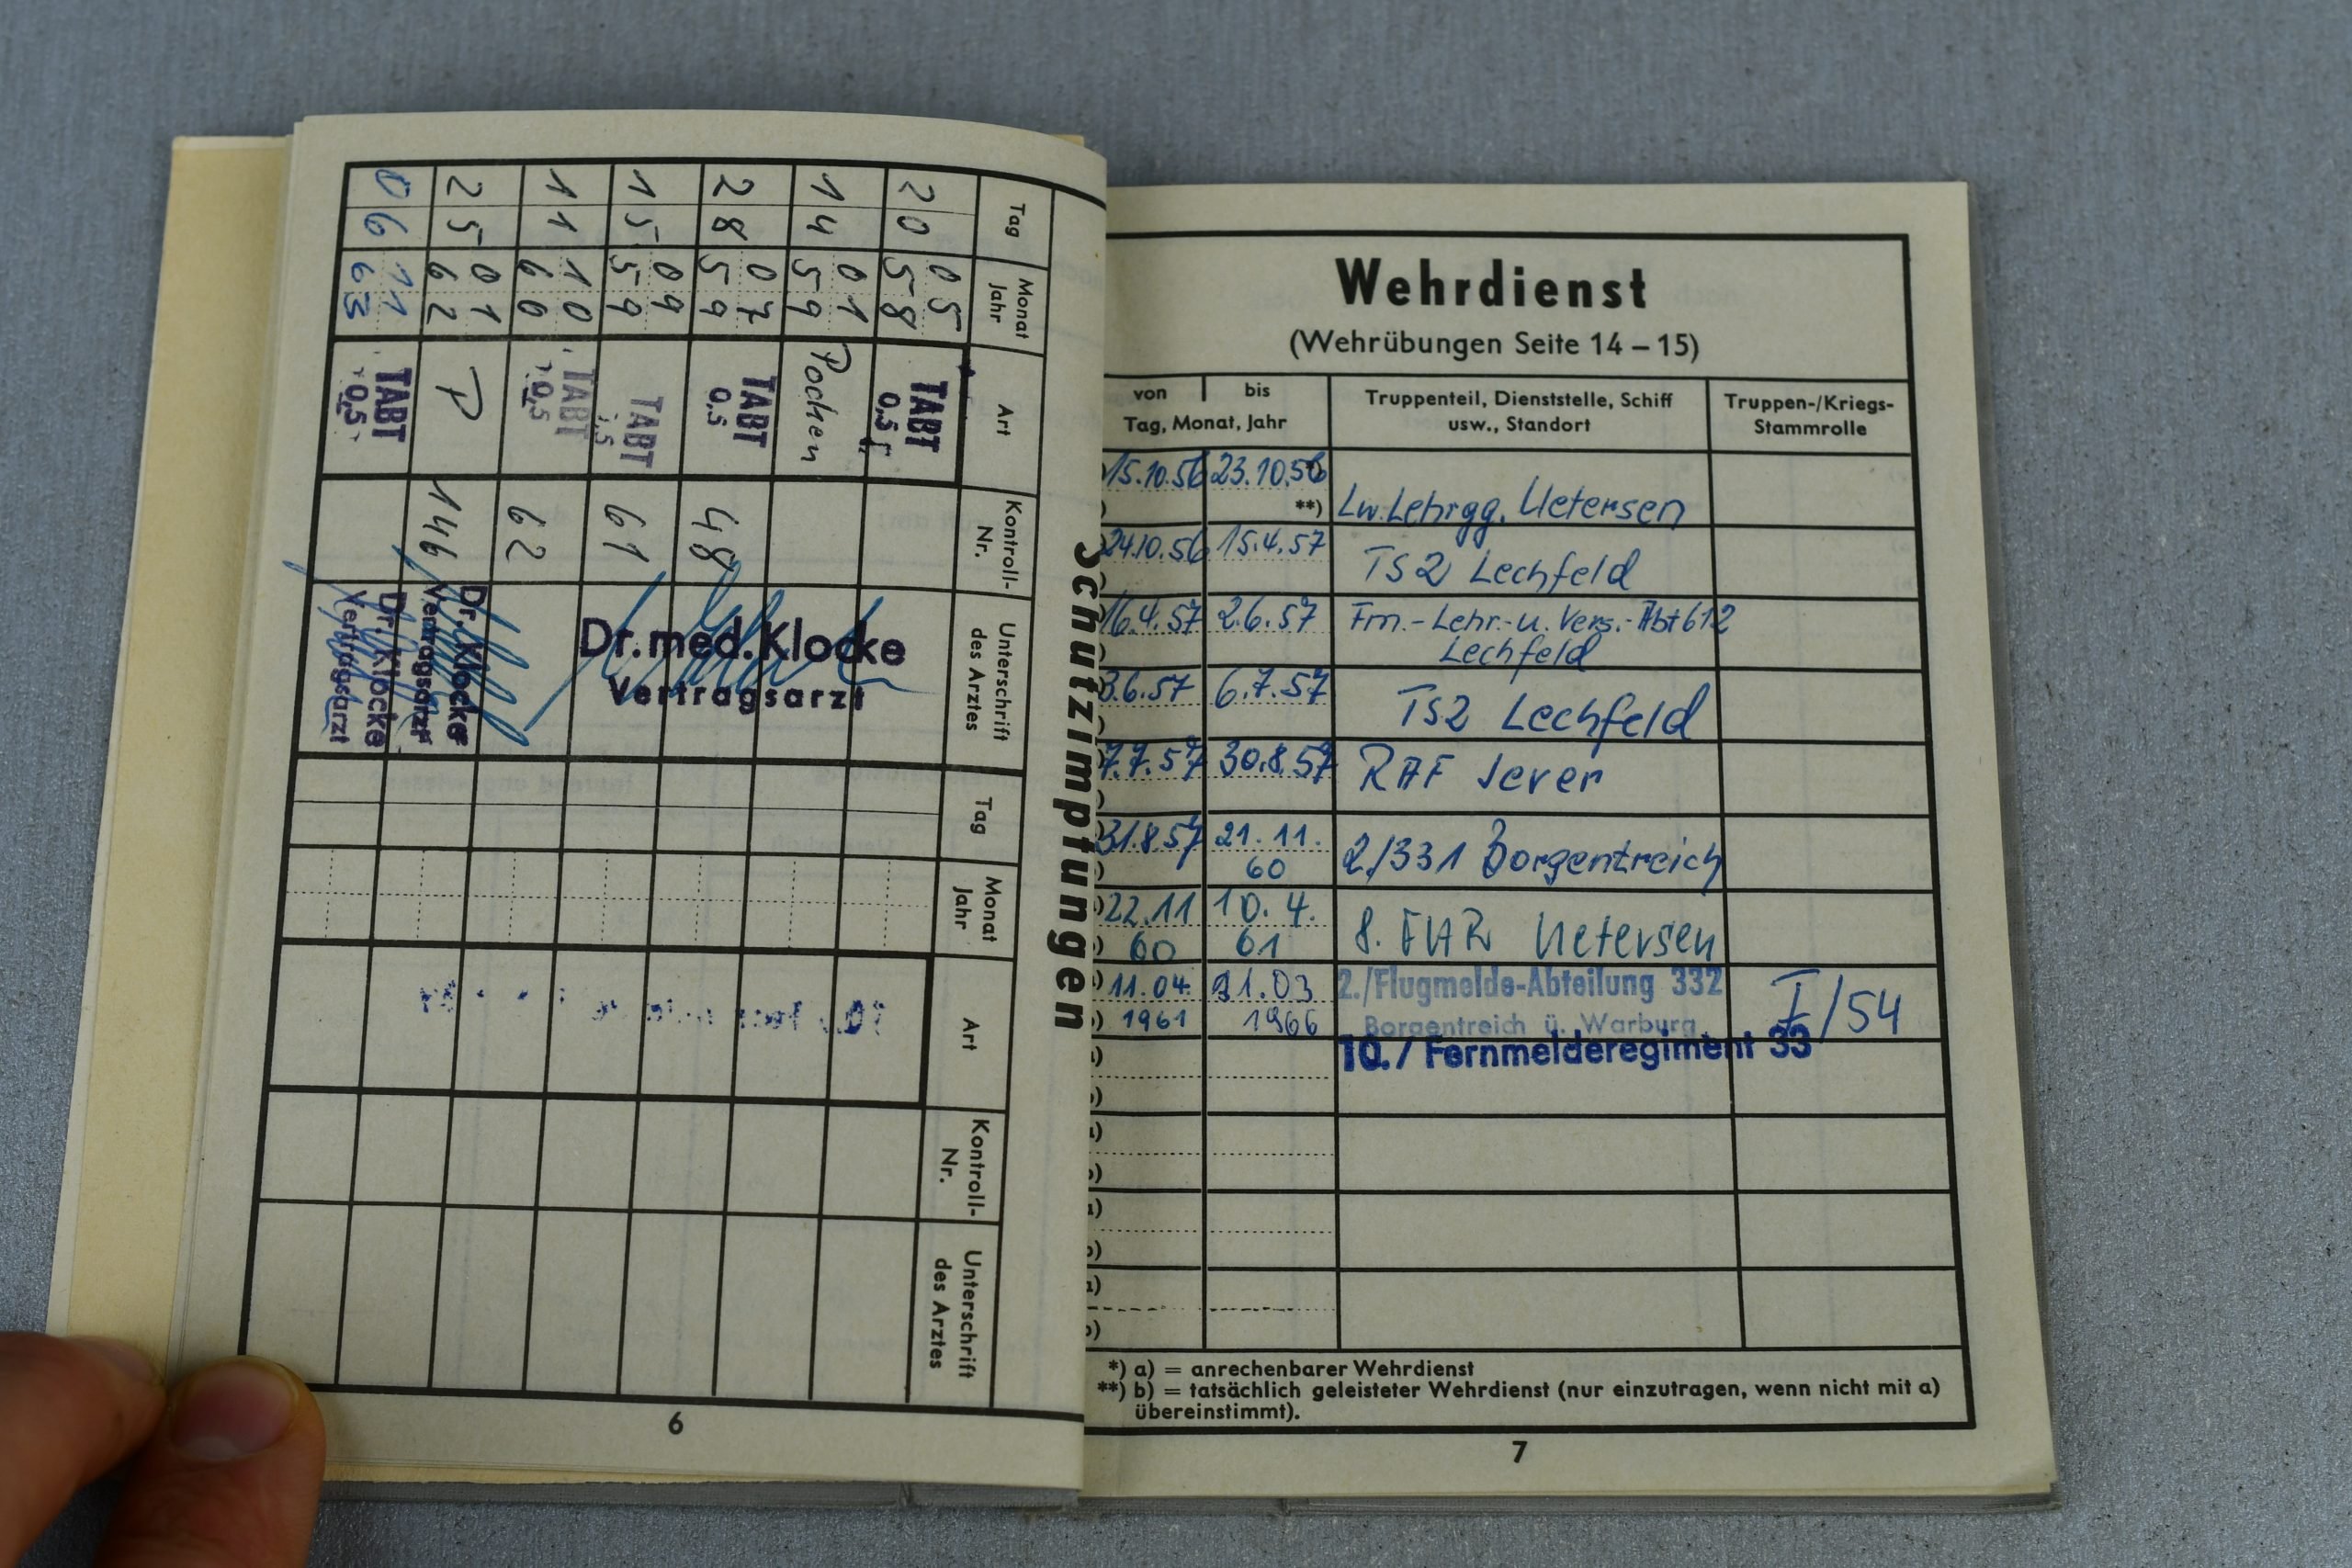 Schutzimpfungen
Tag
Monat
Jahr
Art
Kontroll-
Nr.
Unterschrift
des Arztes
Tag
Monat
Jahr
Art
Kontroll-
Nr.
Unterschrift
des Arztes
20 05 58 TABT 0,5
14 01 59 Pocken
28 07 59 TABT 0,5 48
15 09 59 TABT 61
11 10 60 TABT 0,5 62
25 01 62 P 146
06 11 63 TABT 0,5
Dr. med. Klocke
Vertragsarzt
Dr. Klocke
Vertragsarzt
Dr. Klocke
Vertragsarzt
6
Wehrdienst
(Wehrübungen Seite 14 – 15)
von bis
Tag, Monat, Jahr
Truppenteil, Dienststelle, Schiff
usw., Standort
Truppen-/Kriegs-
Stammrolle
15.10.56 23.10.56
**) Lw. Lehrgg. Uetersen
24.10.56 15.4.57 TS2 Lechfeld
16.4.57 2.6.57 Fm.-Lehr-u. Vers.-Abt 612
Lechfeld
3.6.57 6.7.57 TS2 Lechfeld
7.7.57 30.8.57 RAF Jever
31.8.57 21.11.
60 2/331 Borgentreich
22.11 10.4.
60 61 8. FAR Uetersen
11.04. 31.03 2./Flugmelde-Abteilung 332
1961 1966 Borgentreich ü. Warburg I/54
10./ Fernmelderegiment 33
*) a) = anrechenbarer Wehrdienst
**) b) = tatsächlich geleisteter Wehrdienst (nur einzutragen, wenn nicht mit a)
übereinstimmt).
7